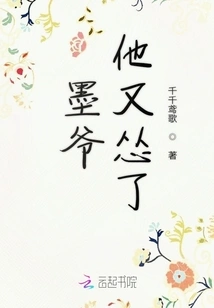 他又怂了
墨爷
千千鸢歌 ◎ 著
云起书院